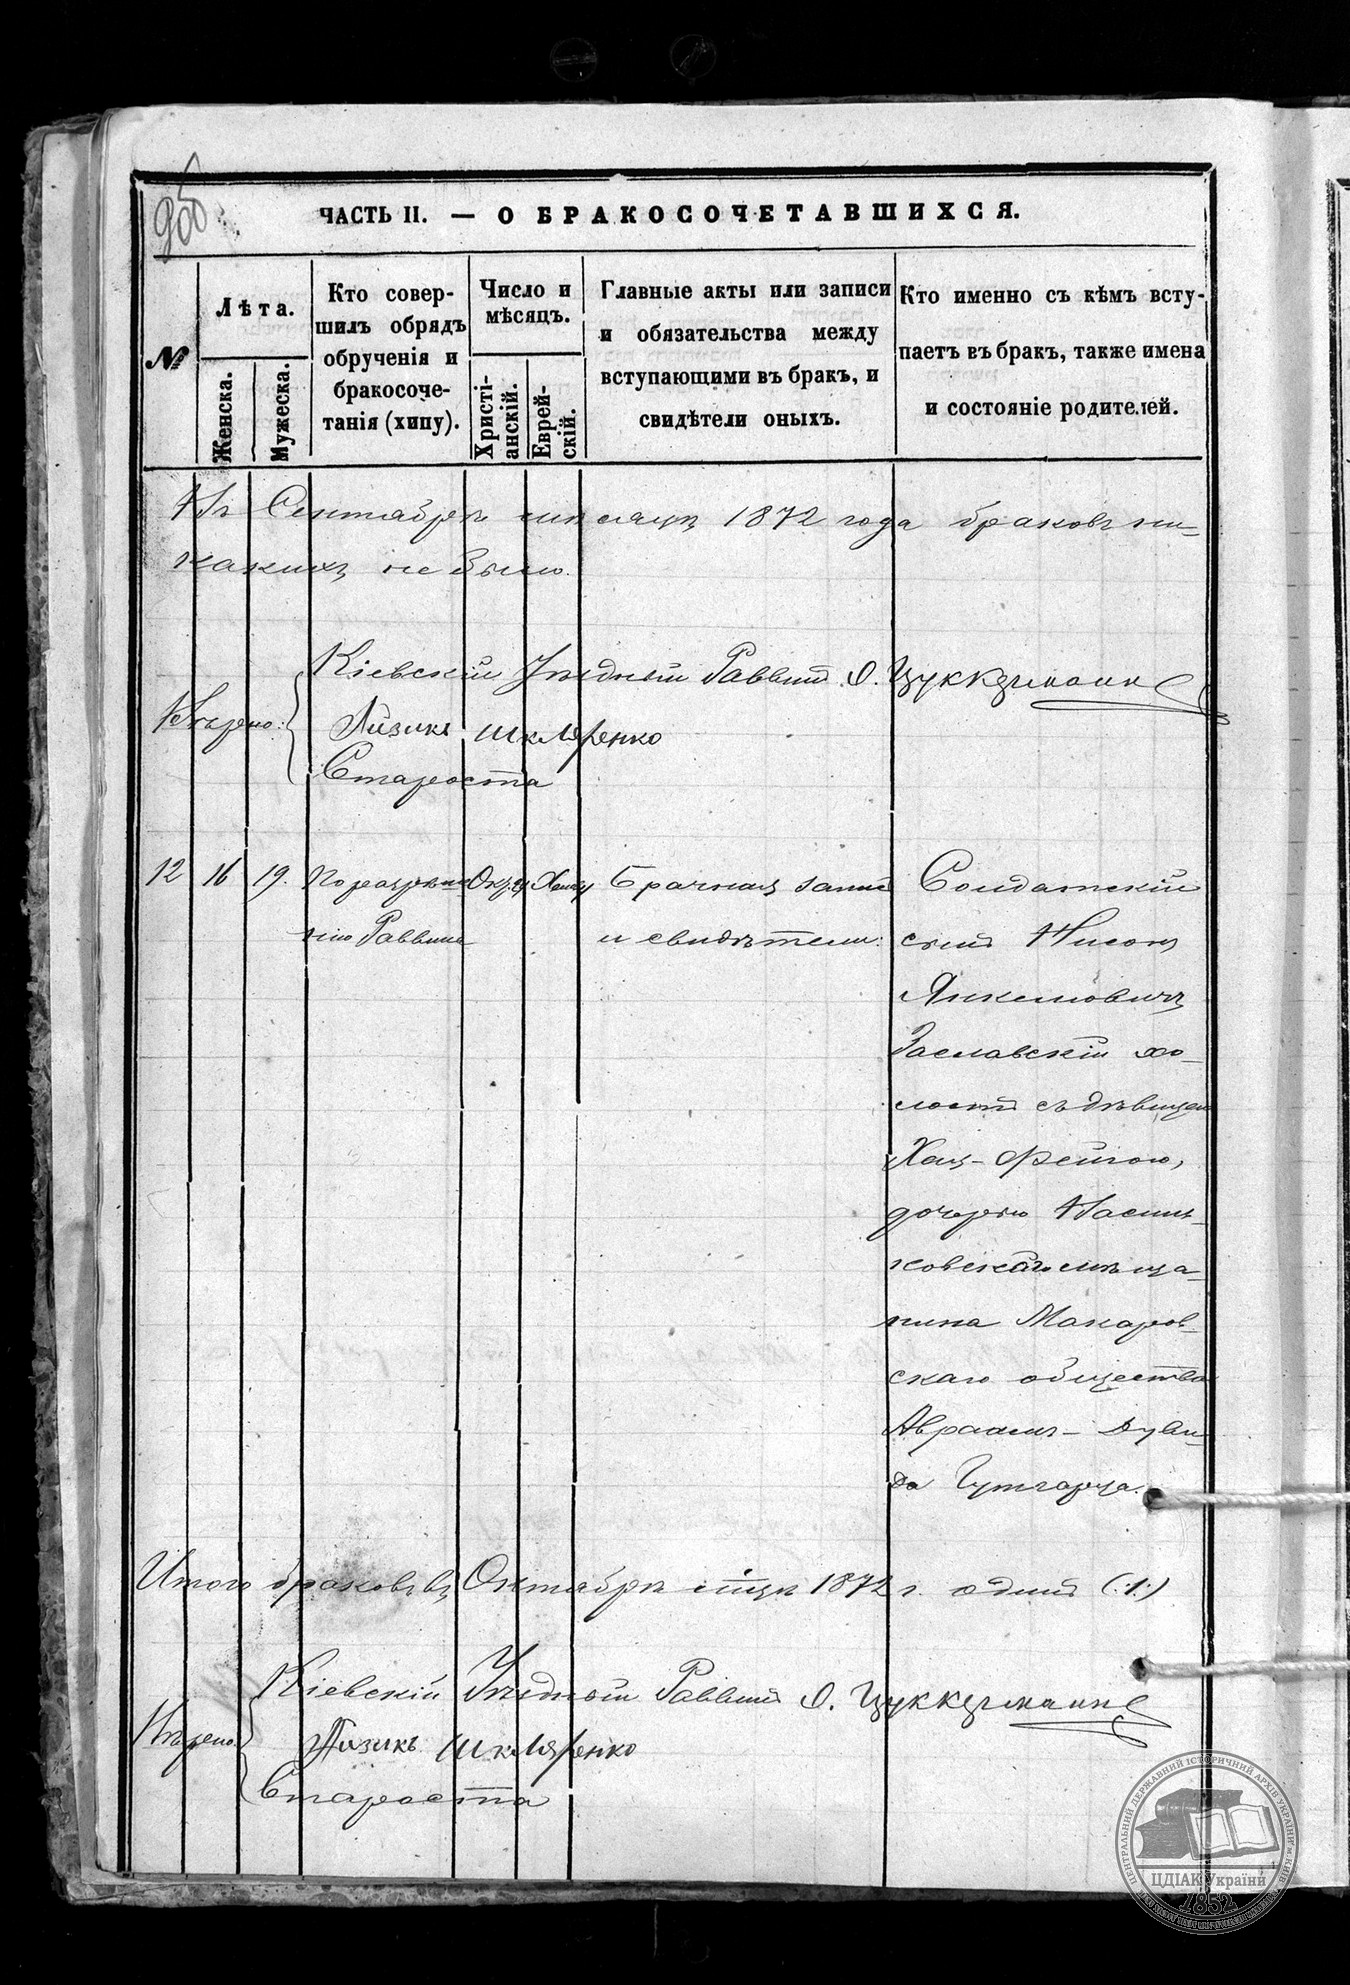 ЧАСТЬ II. — О БРАКОСОЧЕТАВШИХСЯ.
№
Лѣта.
Женска.
Мужеска.
Кто совер-
шилъ обрядъ
обрученія и
бракосоче-
танія (хипу).
Число и
мѣсяцъ.
Христі-
анскій.
Еврей-
скій.
Главные акты или записи
и обязательства между
вступающими въ бракъ, и
свидѣтели оныхъ.
Кто именно съ кѣмъ всту-
паетъ въ бракъ, также имена
и состояніе родителей.
Въ Сентябрѣ мѣсяцѣ 1872 года браковъ ни-
какихъ не было.
Кіевскій Уѣздный Раввинъ О. Цуккерманъ
Вѣрно:
Айзикъ Шкляренко
Староста
12 16 19. По разрѣше-
нію Раввина
Окт.
Брачная запись
и свидѣтели:
Солдатскій
сынъ Нисонъ
Янкелевичъ
Заславскій хо-
лостъ съ дѣвицею
Хая-Фейгою,
дочерью Василь-
ковскаго мѣща-
нина Макаров-
скаго общества
Авраамъ-Дуви-
да Гутгарца.
Итого браковъ въ Октябрѣ м-цѣ 1872 г. одинъ (1)
Кіевскій Уѣздный Раввинъ О. Цуккерманъ
Вѣрно:
Айзикъ Шкляренко
Староста
ЦЕНТРАЛЬНИЙ ДЕРЖАВНИЙ ІСТОРИЧНИЙ АРХІВ УКРАЇНИ м. КИЇВ
ЦДІАК України
1852